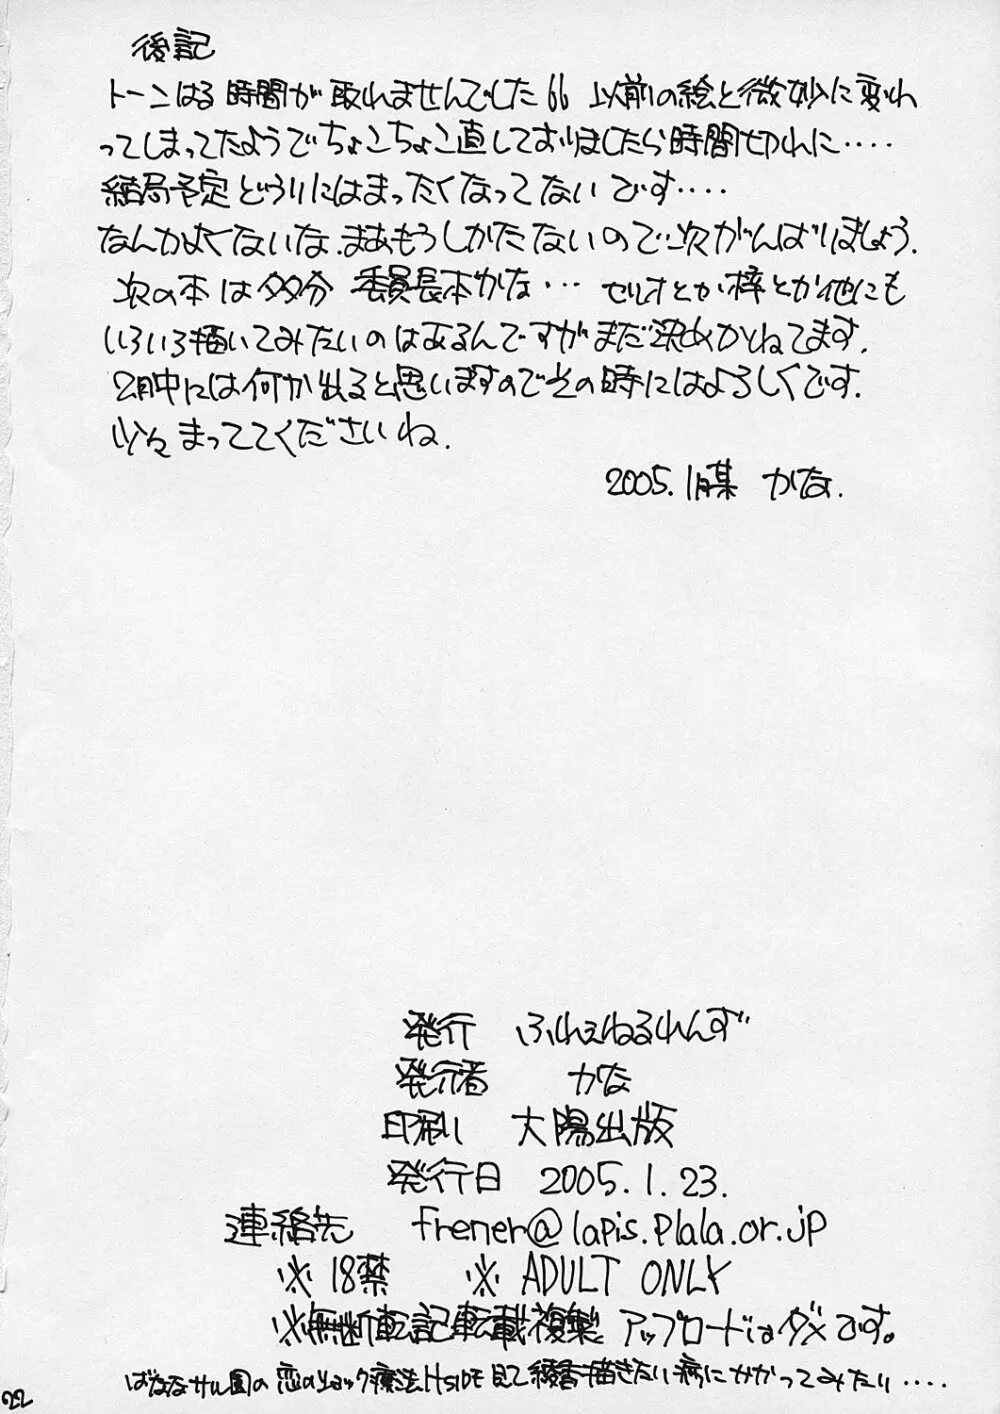 後記
トーンはる時間が取れませんでした66 以前の絵と微妙に変わ
ってしまってたようでちょこちょこ直しておりましたら時間切れに‥‥
結局予定どうりにはまったくなってないです‥‥
なんかよくないな.まあもうしかたないので次がんばりましょう.
次の本は多分 委員長本かな‥. セリオとか梓とか他にも
いろいろ描いてみたいのはあるんですがまだ決めかねてます.
2月中には何か出ると思いますのでその時にはよろしくです.
少々まっててくださいね.
2005.1月某 かな.
発行 ふれぇねるれんず
発行者 かな
印刷 大陽出版
発行日 2005.1.23.
連絡先 frener@lapis.plala.or.jp
※18禁 ※ADULT ONLY
※無断転記転載複製 アップロードはダメです。
ばななサル園の恋のショック療法HSIDEを見て綾香描きたい病にかかってみたり‥‥
22